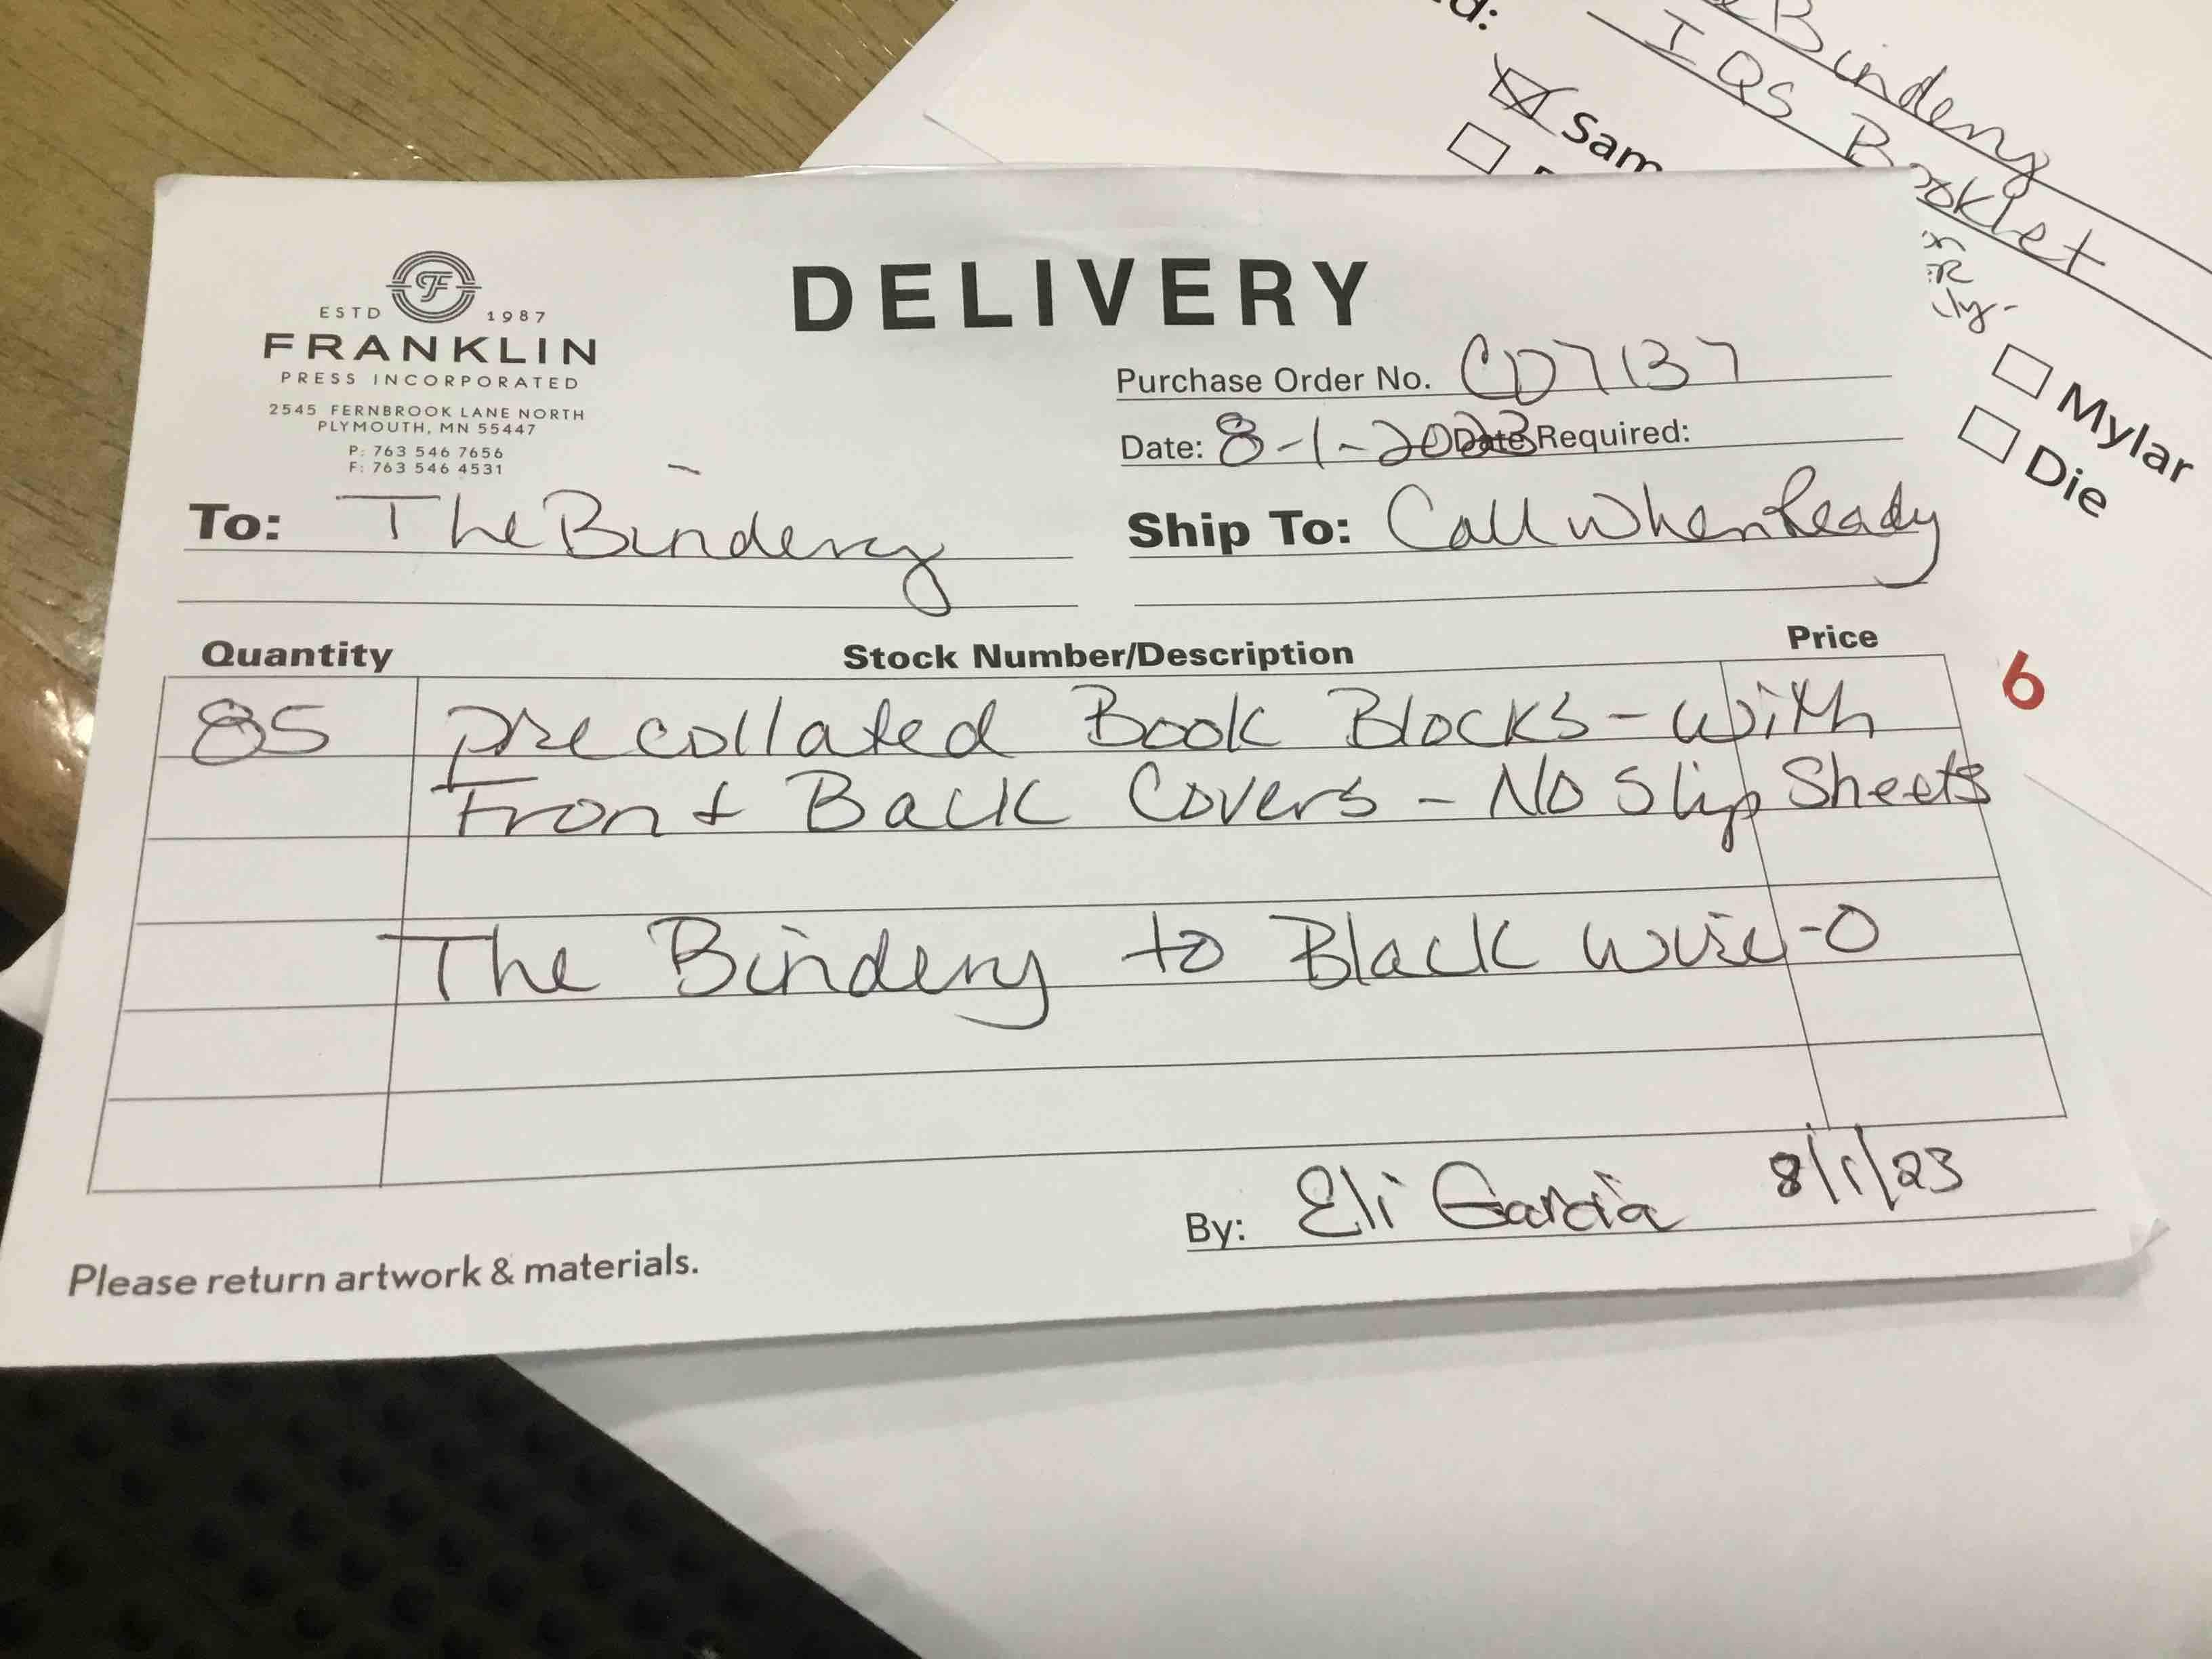 d:
Bindery
IQS Booklet
Sam
ER
ly-
Mylar
Die
F
ESTD 1987
FRANKLIN
PRESS INCORPORATED
2545 FERNBROOK LANE NORTH
PLYMOUTH, MN 55447
P: 763 546 7656
F: 763 546 4531
DELIVERY
Purchase Order No. CD7137
Date: 8-1-2023 Date Required:
To: The Bindery
Ship To: Call When Ready
Quantity Stock Number/Description Price
6
85 precollated Book Blocks - with
Front Back Covers - No Slip Sheets
The Bindery to Black wire-O
By: Eli Garcia 8/1/23
Please return artwork & materials.